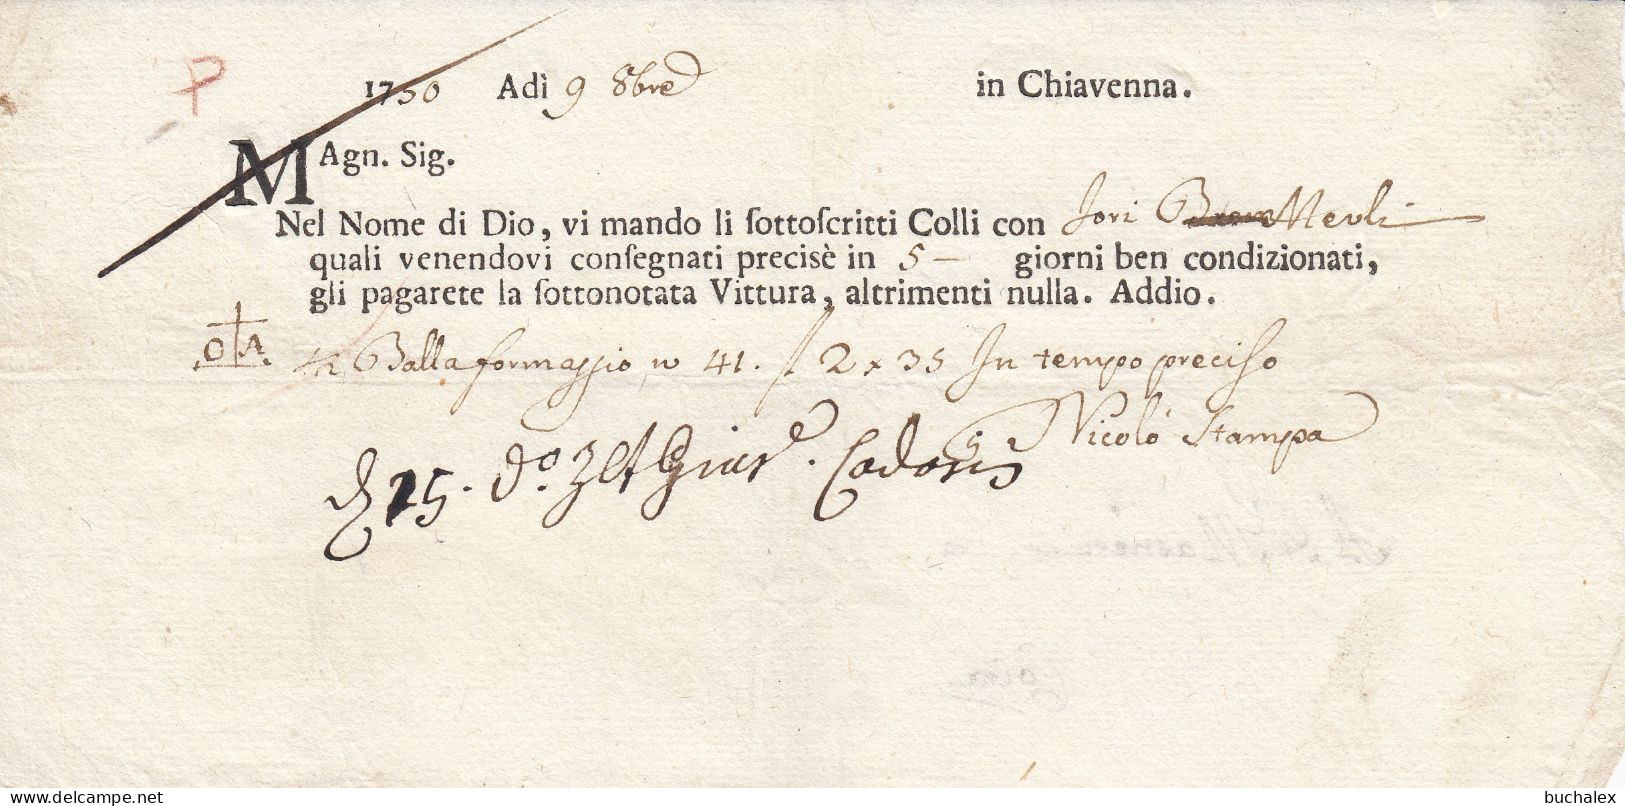 P
1750 Adì 9 8bre in Chiavenna.
MAgn. Sig.
Nel Nome di Dio, vi mando li ſottoſcritti Colli con Jori
quali venendovi conſegnati preciſè in 5 – giorni ben condizionati,
gli pagarete la ſottonotata Vittura, altrimenti nulla. Addio.
O A. Balla formaggio n 41. 2 x 35 In tempo preciso
Nicolò Stampa
25. do.
delcampe.net
buchalex